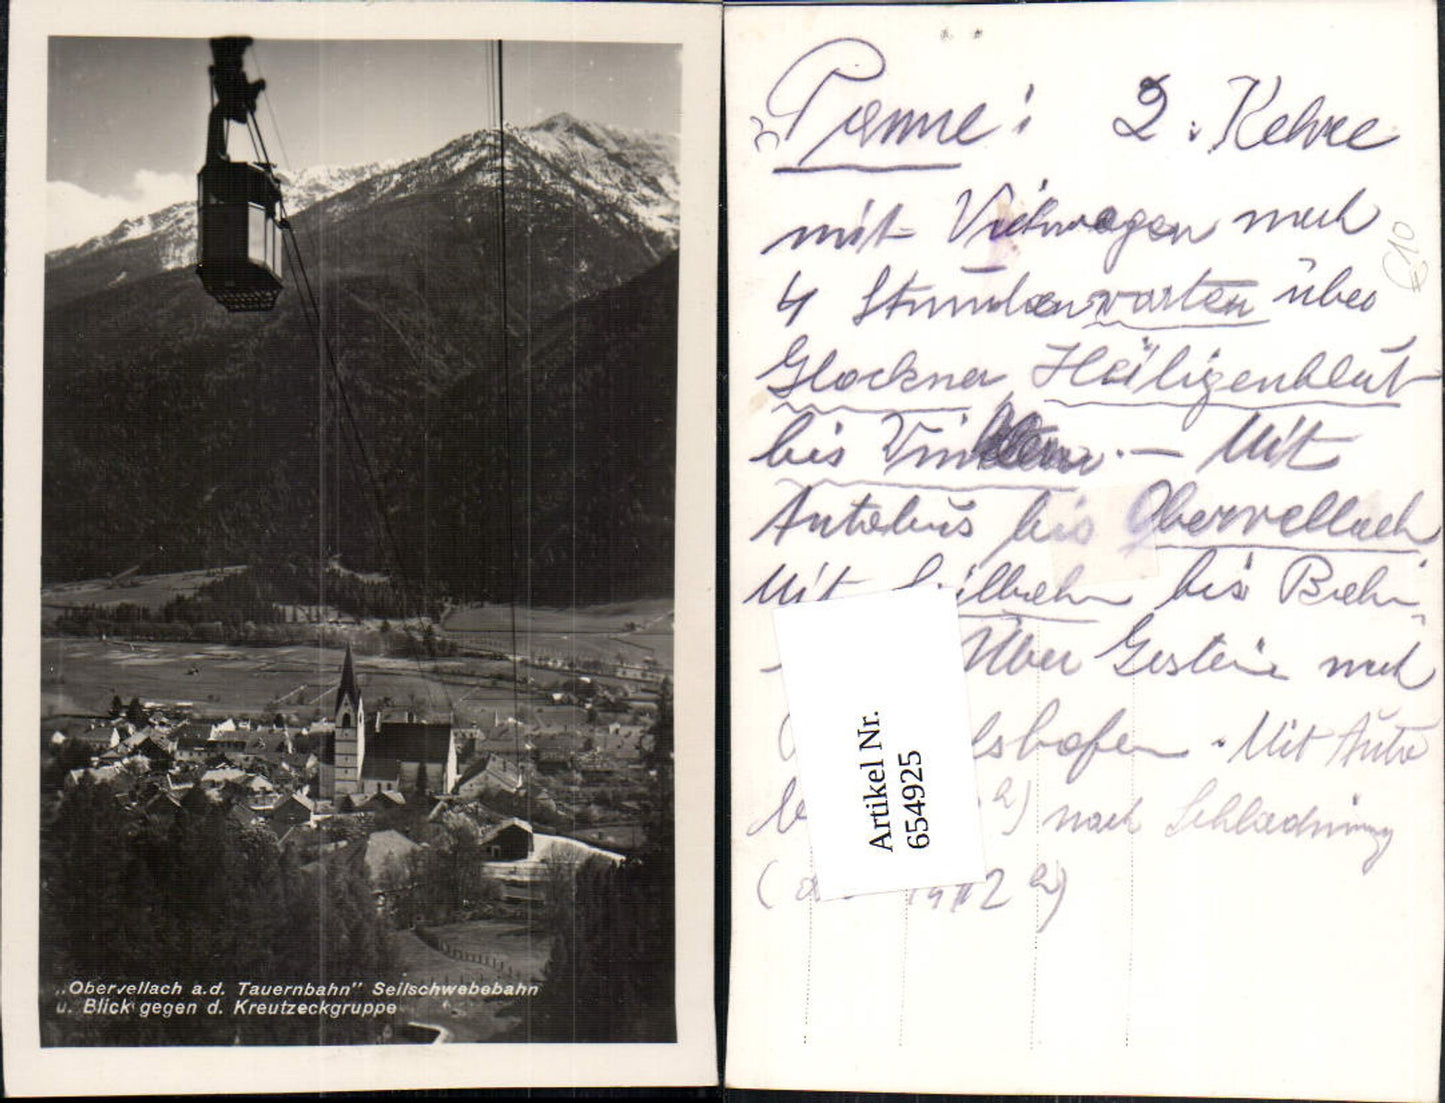 „Obervellach a.d. Tauernbahn" Seilschwebebahn
u. Blick gegen d. Kreutzeckgruppe
Panne: 2. Kehre
mit Viehwagen nach
4 Stunden warten über
Glockner, Heiligenblut
bis — Mit
Autobus bis Obervellach
Mit bis
Über nach
Mit Auto
nach Schladming
€10
Artikel Nr.
654925